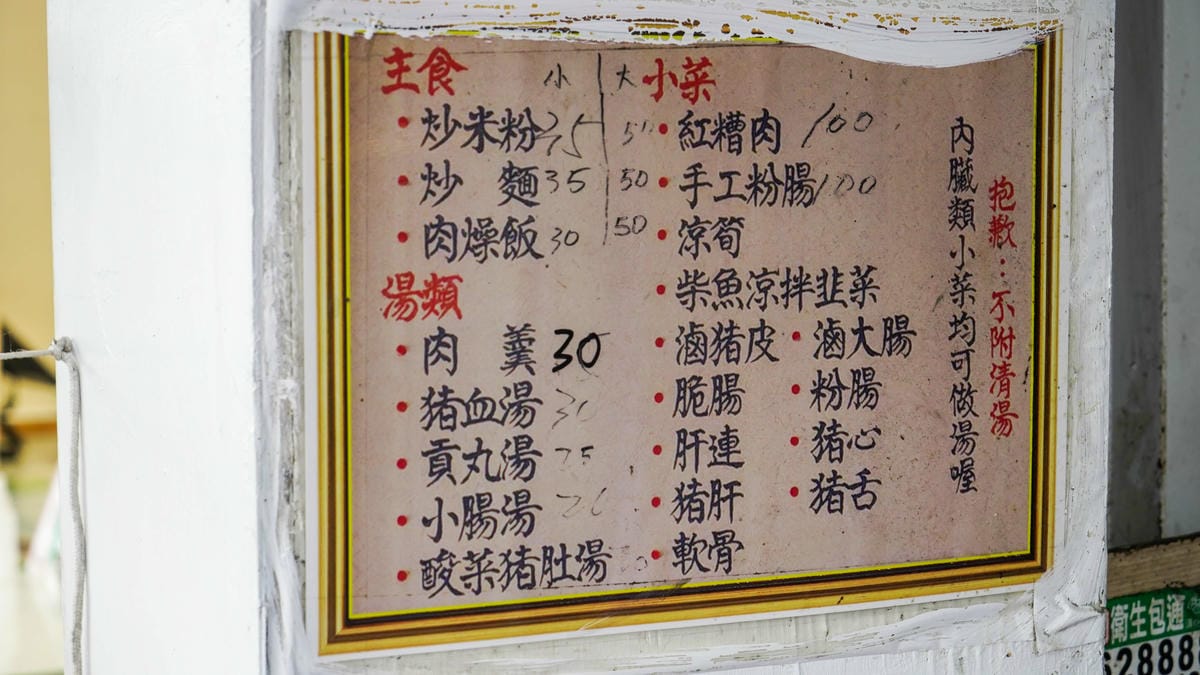 主食 小 大
炒米粉 35 50
炒麵 35 50
肉燥飯 30 50
湯類
肉羹 30
豬血湯 30
貢丸湯
小腸湯
酸菜豬肚湯
小菜
紅糟肉 100
手工粉腸 100
涼筍
柴魚涼拌韭菜
滷豬皮 滷大腸
脆腸 粉腸
肝連 豬心
豬肝 豬舌
軟骨
抱歉:不附清湯
內臟類小菜均可做湯喔
衛生包通
62888